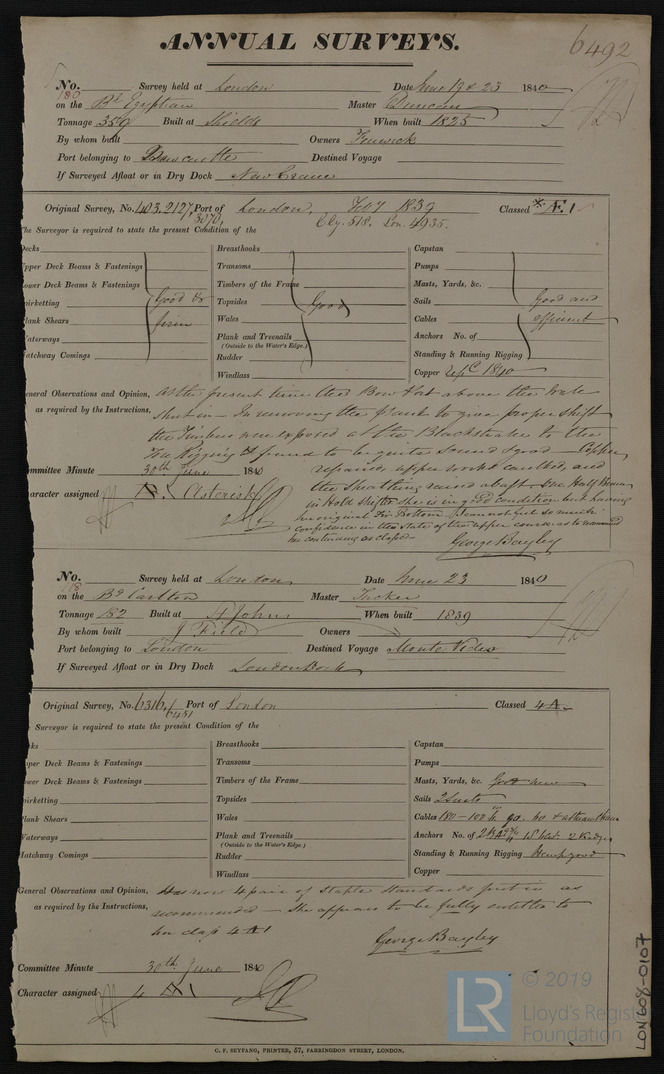 ANNUAL SURVEYS.
6492
No. 180 Survey held at London Date June 19 & 23 1840
on the Bk Egyptian Master Duncan
Tonnage 359 Built at Shields When built 1825
By whom built Owners Fenwick
Port belonging to Newcastle Destined Voyage
If Surveyed Afloat or in Dry Dock New Crane
Original Survey, No. 403. 2127, Port of London, 1839 Classed Æ 1
3070, Cly. 518. Lon 4935.
The Surveyor is required to state the present Condition of the
Decks
Upper Deck Beams & Fastenings
Lower Deck Beams & Fastenings
Spirketting Good &
Plank Shears firm
Waterways
Hatchway Comings
Breasthooks
Transoms
Timbers of the Frame
Topsides Good
Wales
Plank and Treenails
(Outside to the Water's Edge.)
Rudder
Windlass
Capstan
Pumps
Masts, Yards, &c.
Sails Good and
Cables efficient
Anchors No. of
Standing & Running Rigging
Copper 1840
General Observations and Opinion, At the present time the Bow Port above the Wale
as required by the Instructions, shut in - In removing the plank to give proper shift
the Timbers were exposed at the Blackstrake to the
Fore Rigging & found to be quite sound & good - Copper
repaired, upper works caulked, and
the sheathing raised abaft - One Half Beam
in Hold shifted she is in good condition but having
her original Fir Bottom I cannot put so much
confidence in the state of the upper course as to recommend
her continuing as classed
George Bayley
Committee Minute 30th June 1840
Character assigned Æ 1 Asterisk
No. 118 Survey held at London Date June 23 1840
on the Bg Carlton Master Tucker
Tonnage 182 Built at St Johns When built 1839
By whom built J Field Owners
Port belonging to London Destined Voyage Monte Video
If Surveyed Afloat or in Dry Dock London Dock
Original Survey, No. 6316, Port of London Classed 4 A
6451
Surveyor is required to state the present Condition of the
Decks
Upper Deck Beams & Fastenings
Lower Deck Beams & Fastenings
Spirketting
Plank Shears
Waterways
Hatchway Comings
Breasthooks
Transoms
Timbers of the Frame
Topsides
Wales
Plank and Treenails
(Outside to the Water's Edge.)
Rudder
Windlass
Capstan
Pumps
Masts, Yards, &c. Good new
Sails 2 Suits
Cables 180 - 100 90. 60
Anchors No. of 2 Kedges
Standing & Running Rigging Hemp good
Copper
General Observations and Opinion, Has now 4 pair of Staple Standards put in as
as required by the Instructions, recommended - She appears to be fully entitled to
her class 4 A 1
George Bayley
Committee Minute 30th June 1840
Character assigned 4 A 1
C. F. SEYFANG, PRINTER, 57, FARRINGDON STREET, LONDON.
LON608-0107
LR
© 2019
Lloyd's Register
Foundation